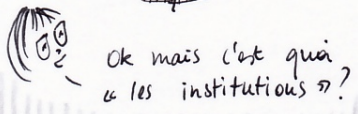 Ok mais c'est quoi
« les institutions » ?